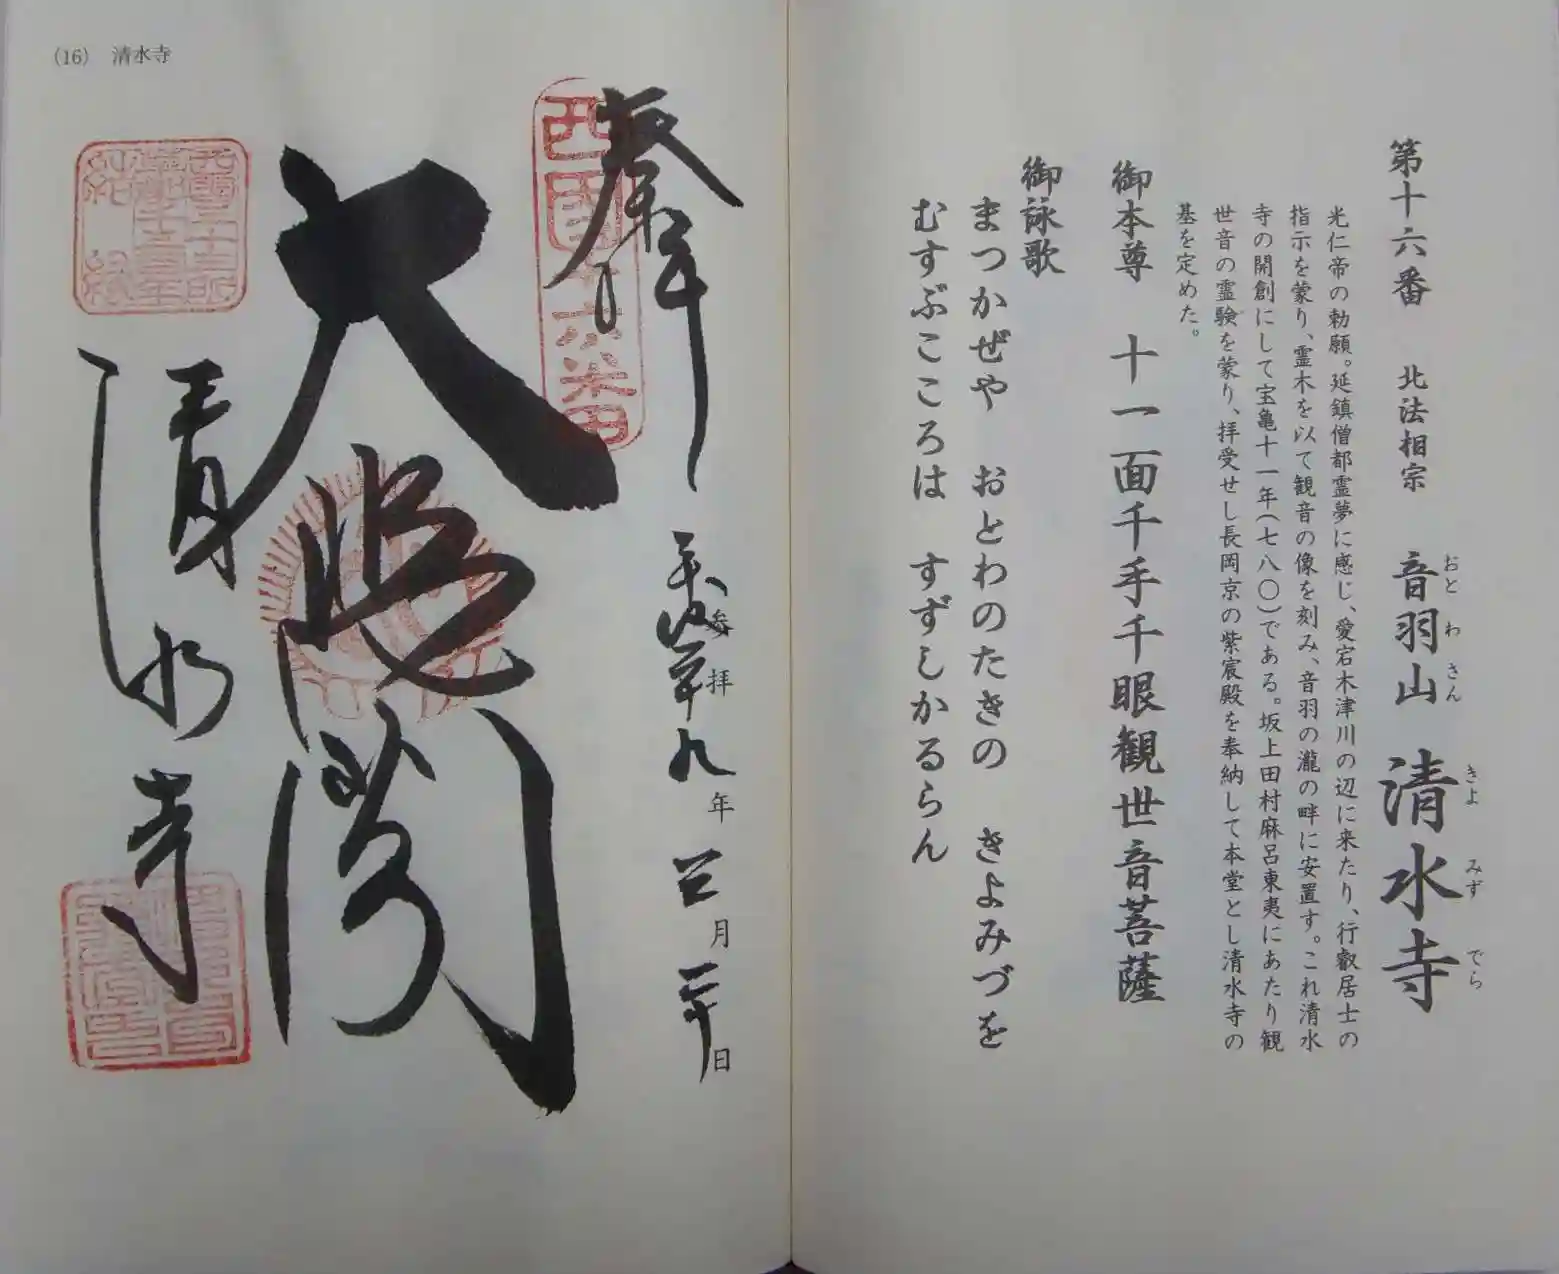 第十六番 北法相宗 音羽山 清水寺
おとわさん きよみずでら
光仁帝の勅願。延鎮僧都霊夢に感じ、愛宕木津川の辺に来たり、行叡居士の
指示を蒙り、霊木を以て観音の像を刻み、音羽の瀧の畔に安置す。これ清水
寺の開創にして宝亀十一年(七八〇)である。坂上田村麻呂東夷にあたり観
世音の霊験を蒙り、拝受せし長岡京の紫宸殿を奉納して本堂とし清水寺の
基を定めた。
御本尊 十一面千手千眼観世音菩薩
御詠歌
まつかぜや おとわのたきの きよみづを
むすぶこころは すずしかるらん
(16) 清水寺
奉拝
平成参拝九年三月二十日
大悲閣
清水寺